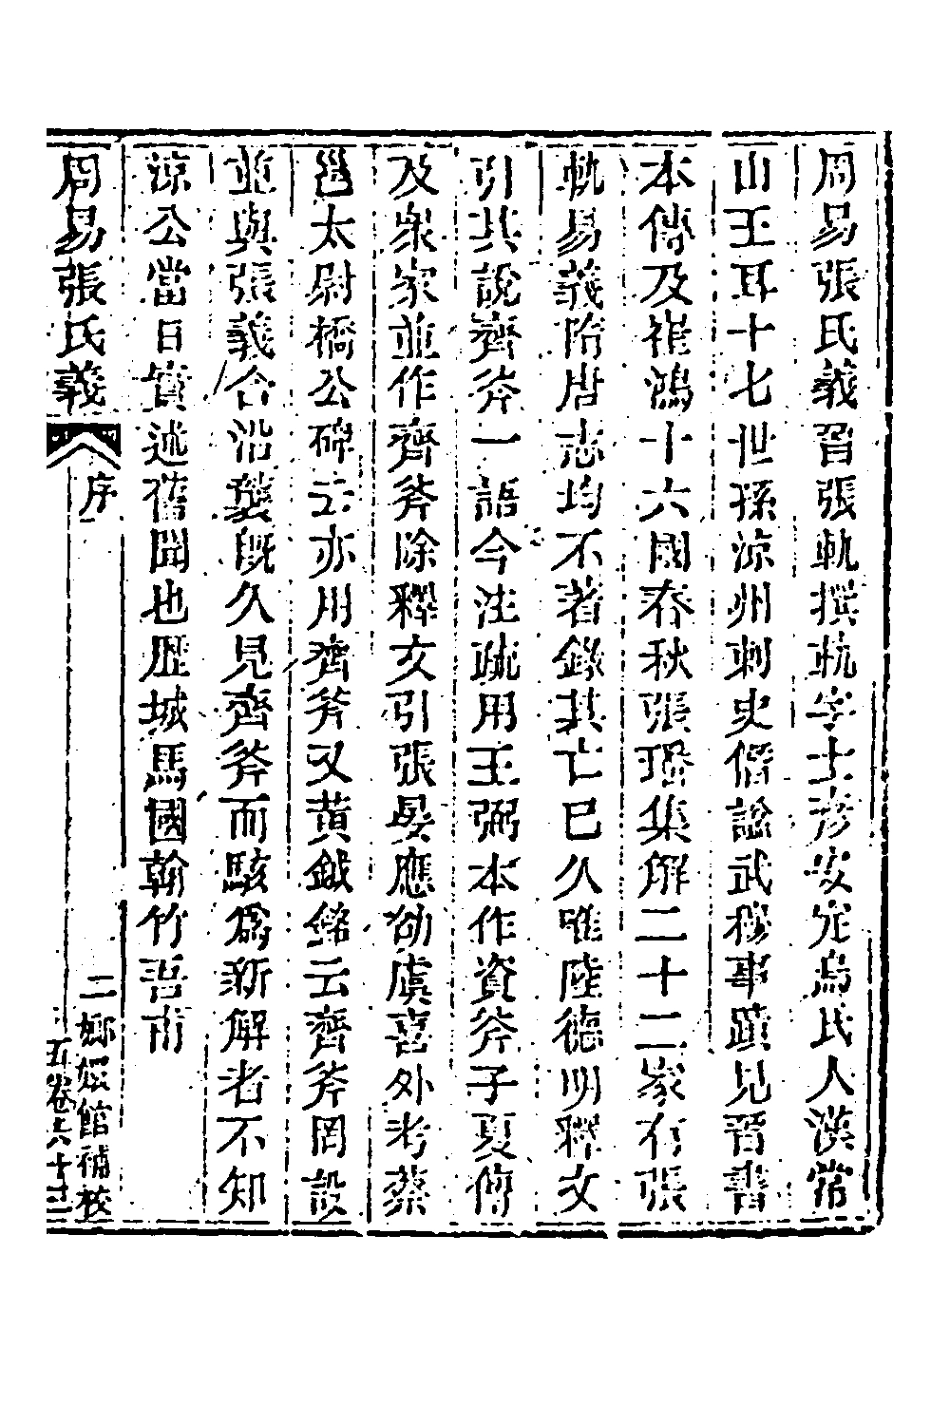 周易張氏義晉張軌撰軌字士彥安定烏氏人漢常
山王耳十七世孫涼州刺史僭諡武穆事蹟見晉書
本傳及崔鴻十六國春秋張璠集解二十二家有張
軌易義隋唐志均不著錄其亡已久唯陸德明釋文
引其說齊斧一語今注疏用王弼本作資斧子夏傳
及衆家並作齊斧除釋文引張晏應劭虞喜外考蔡
邕太尉橋公碑云亦用齊斧又黃鉞銘云齊斧罔設
並與張義合沿襲旣久見齊斧而駭爲新解者不知
涼公當日實述舊聞也歷城馬國翰竹吾甫
周易張氏義 序
二 嫏嬛館補校
五卷六十三